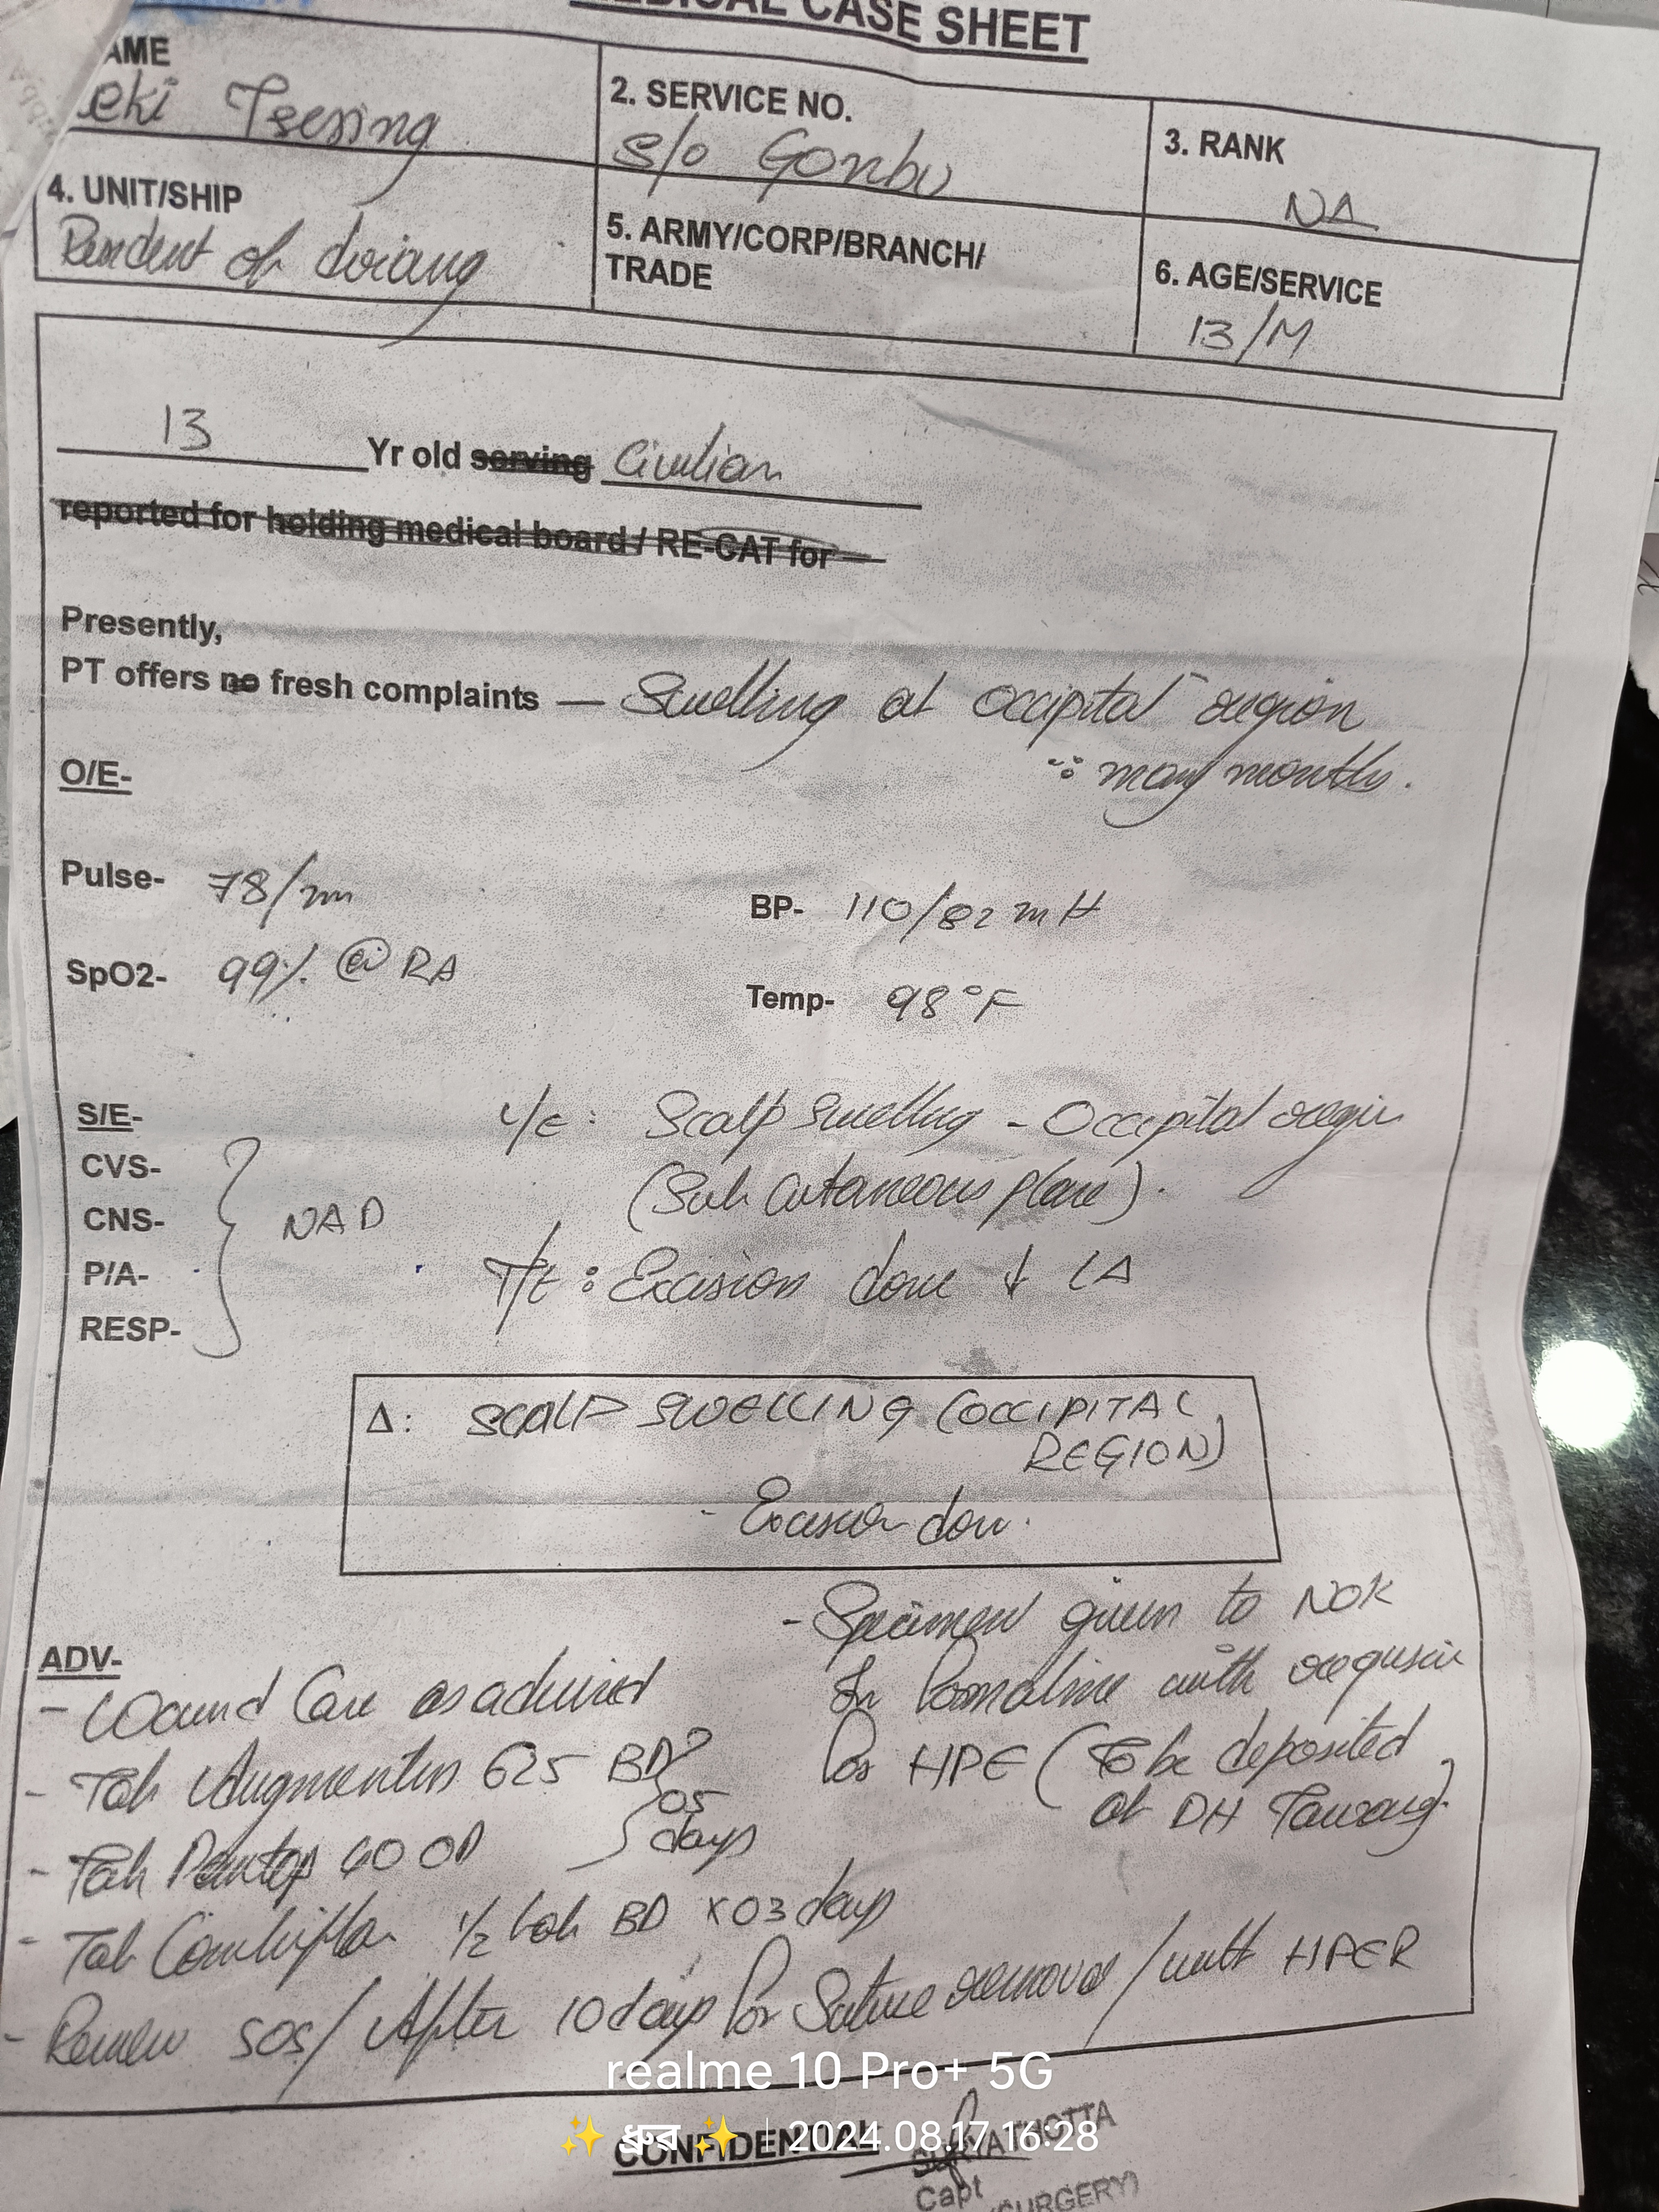 MEDICAL CASE SHEET
AME
eki Tsering
2. SERVICE NO.
S/o Gonbu
3. RANK
NA
4. UNIT/SHIP
Resident of dirang
5. ARMY/CORP/BRANCH/
TRADE
6. AGE/SERVICE
13/M
13 Yr old serving Civilian
reported for holding medical board / RE-CAT for
Presently,
PT offers no fresh complaints — Swelling at Occipital region
many months.
O/E-
Pulse- 78/min
BP- 110/82 mH
SpO2- 99% @ RA
Temp- 98°F
S/E-
L/E: Scalp Swelling - Occipital region
CVS-
(Sub cutaneous plane).
CNS-
NAD
P/A-
T/t: Excision done ↓ LA
RESP-
Δ: SCALP SWELLING (OCCIPITAL
REGION)
- Excision done.
- Specimen given to NOK
in formaline with requisition
for HPE (To be deposited
at DH Tawang)
ADV-
- Wound Care as advised
- Tab Augmentin 625 BD
05
days
- Tab Pantop 40 OD
- Tab Combiflam 1/2 tab BD x 03 days
- Review SOS / After 10 days for Suture removal / with HPER
realme 10 Pro+ 5G
✨ ध्रुव ✨ | 2024.08.17 16:28
CONFIDENTIAL
SURYA THOTTA
Capt
(SURGERY)